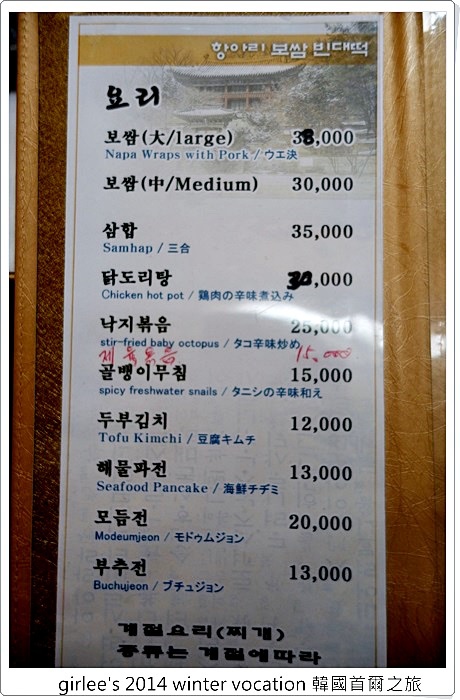 항아리 보쌈 빈대떡
요리
보쌈(大/large) 38,000
Napa Wraps with Pork / ウエ決
보쌈(中/Medium) 30,000
삼합 35,000
Samhap / 三合
닭도리탕 30,000
Chicken hot pot / 鶏肉の辛味煮込み
낙지볶음 25,000
stir-fried baby octopus / タコ辛味炒め
제육볶음 15,000
골뱅이무침 15,000
spicy freshwater snails / タニシの辛味和え
두부김치 12,000
Tofu Kimchi / 豆腐キムチ
해물파전 13,000
Seafood Pancake / 海鮮チヂミ
모듬전 20,000
Modeumjeon / モドゥムジョン
부추전 13,000
Buchujeon / ブチュジョン
계절요리(찌개)
종류는 계절에따라
girlee's 2014 winter vocation 韓國首爾之旅